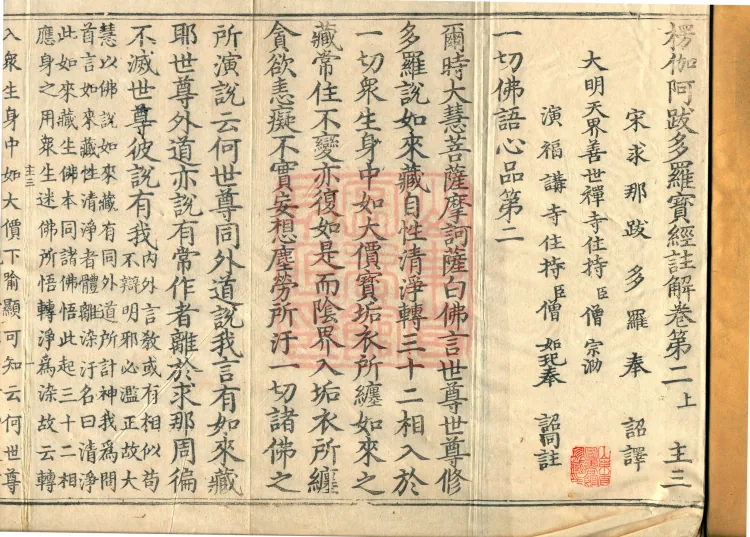 楞伽阿跋多羅寶經註解卷第二上 主三
宋求那跋多羅奉 詔譯
大明天界善世禪寺住持臣僧宗泐
演福講寺住持臣僧如玘奉 詔同註
一切佛語心品第二
爾時大慧菩薩摩訶薩白佛言世尊世尊修
多羅說如來藏自性清淨轉三十二相入於
一切衆生身中如大價寶垢衣所纏如來之
藏常住不變亦復如是而陰界入垢衣所纏
貪欲恚癡不實妄想塵勞所汙一切諸佛之
所演說云何世尊同外道說我言有如來藏
耶世尊外道亦說有常作者離於求那周徧
不滅世尊彼說有我內外言教或有相似苟
不辯明邪必濫正故大
慧以佛說如來藏有同外道所計神我爲問
首言如來藏性清淨者體離染汙名曰清淨
此如來藏生佛本同諸佛悟此起三十二相
應身之用衆生迷佛所悟轉淨爲染故云轉
主三 一
入衆生身中如大價下喻顯可知云何世尊